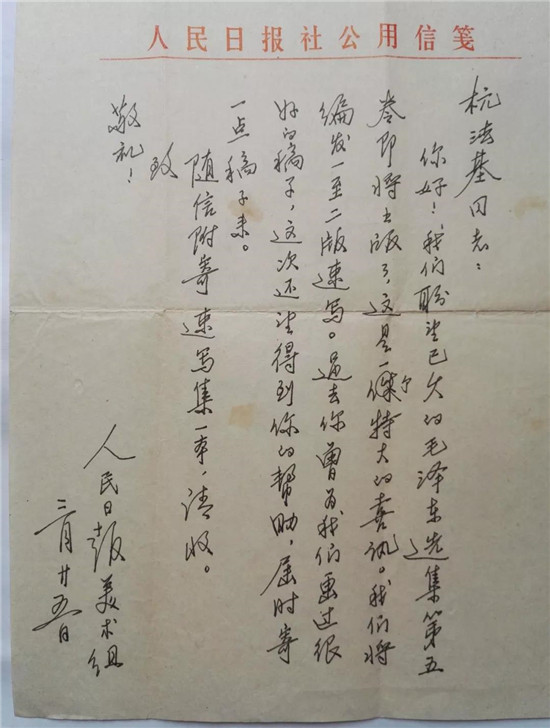 人民日报社公用信笺
杭法基同志：
你好！我们盼望已久的毛泽东选集第五
卷即将出版了，这是一个特大的喜讯。我们将
编发一至二版速写。过去你曾为我们画过很
好的稿子，这次还望得到你的帮助，届时寄
一点稿子来。
随信附寄速写集一本，请收。
致
敬礼！
人民日报美术组
三月廿五日